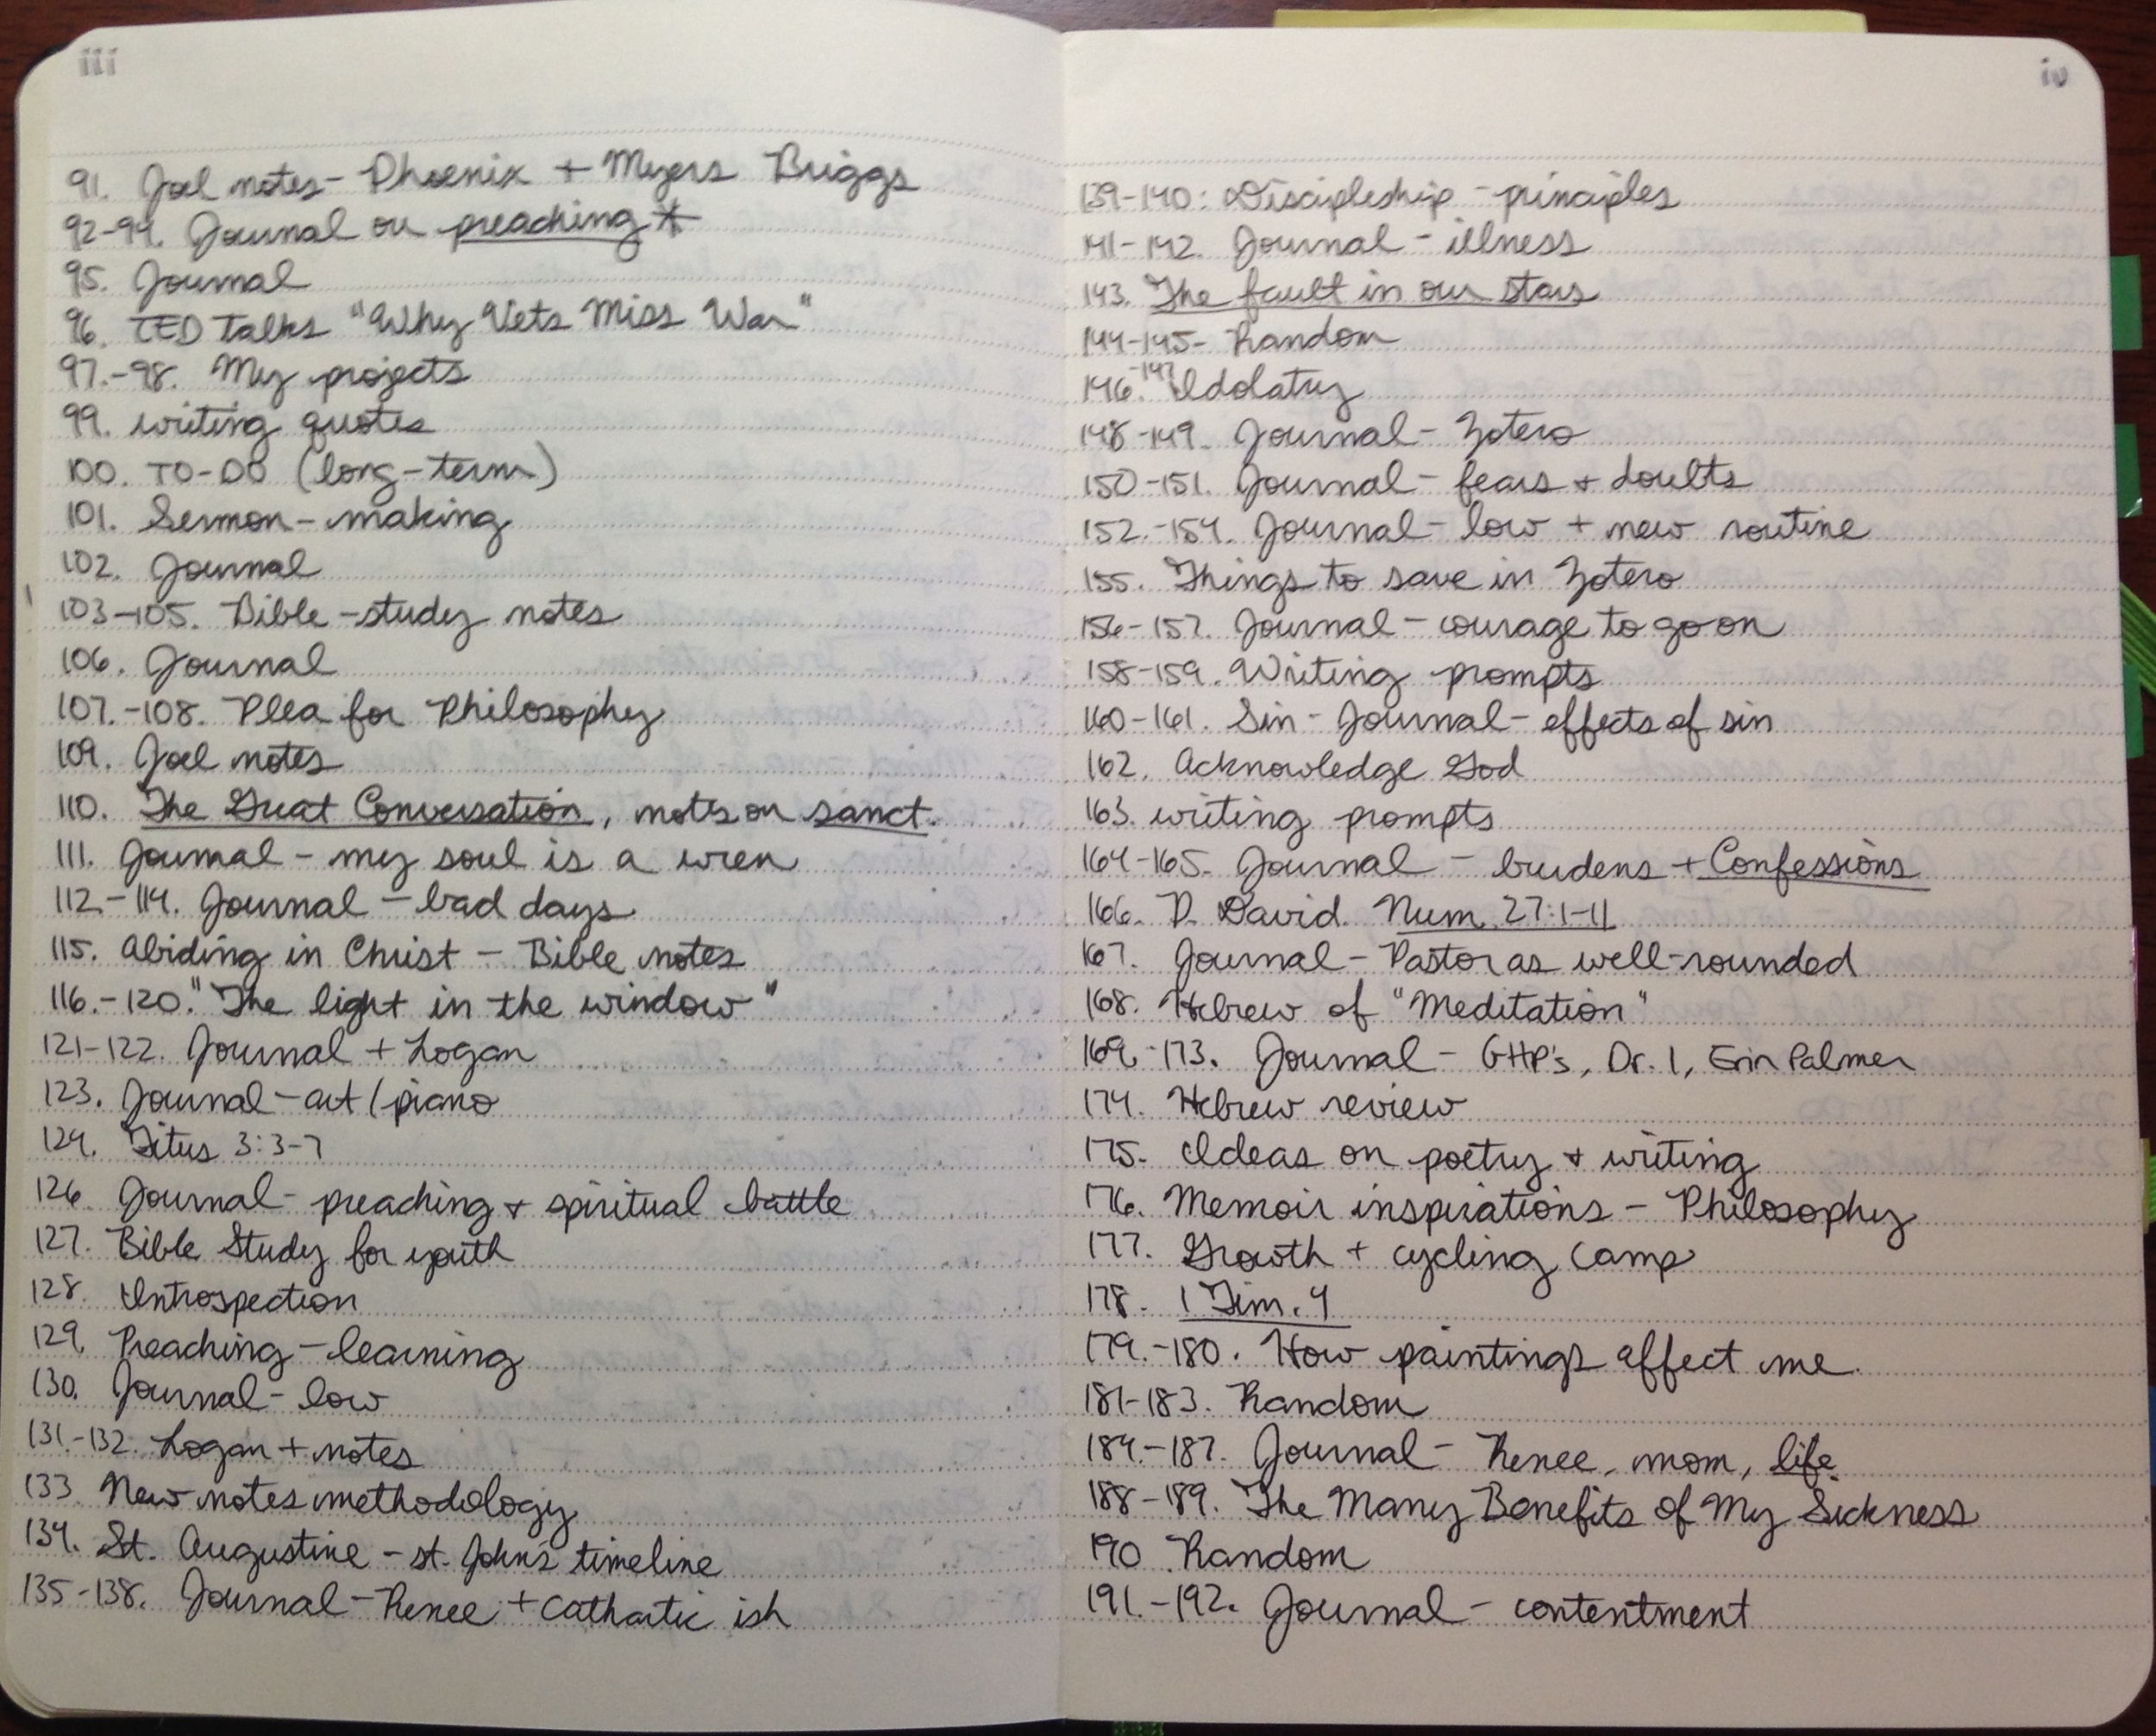 iii
91. Joel notes- Phoenix + Meyers Briggs
92-94. Journal on preaching *
95. Journal
96. TED Talks "Why Vets Miss War"
97.-98. My projects
99. writing quotes
100. TO-DO (long-term)
101. Sermon-making
102. Journal
103-105. Bible-study notes
106. Journal
107.-108. Plea for Philosophy
109. Joel notes
110. The Great Conversation, notes on sanct.
111. Journal - my soul is a wren
112-114. Journal - bad days
115. Abiding in Christ - Bible notes
116.-120. "The light in the window"
121-122. Journal + Logan
123. Journal-art/piano
124. Titus 3:3-7
126. Journal- preaching + spiritual battle
127. Bible Study for youth
128. Introspection
129. Preaching-learning
130. Journal- low
131.-132. Logan + notes
133. New notes methodology
134. St. Augustine - St. John's timeline
135-138. Journal-Renee + cathartic ish
iv
139-140: Discipleship - principles
141-142. Journal - illness
143. The fault in our stars
144-145- Random
146.-147 Idolatry
148-149. Journal- Zotero
150-151. Journal- fears + doubts
152.-154. Journal- low + new routine
155. Things to save in Zotero
156-157. Journal- courage to go on
158-159. Writing prompts
160-161. Sin- Journal- effects of sin
162. Acknowledge God
163. writing prompts
164-165. Journal - burdens + Confessions
166. P. David. Num. 27:1-11
167. Journal- Pastor as well-rounded
168. Hebrew of "Meditation"
169.-173. Journal- GHP's, Dr. I, Erin Palmer
174. Hebrew review
175. Ideas on poetry + writing
176. Memoir inspirations - Philosophy
177. Growth + cycling camp
178. 1 Tim. 4
179.-180. How paintings affect me.
181-183. Random
184.-187. Journal- Renee, mom, life.
188-189. The Many Benefits of My Sickness
190 Random
191.-192. Journal- contentment